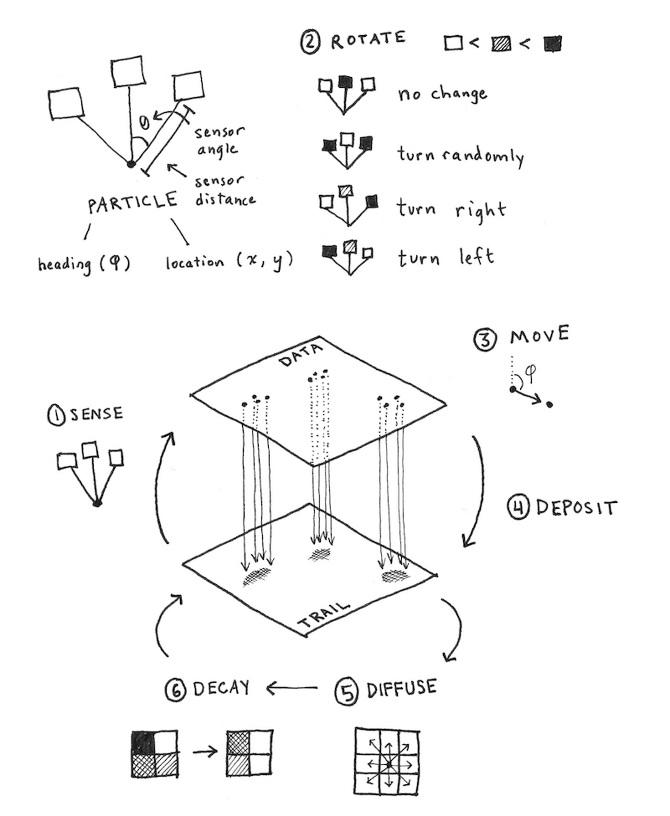 ② ROTATE □ < ▨ < ■
no change
turn randomly
turn right
turn left
θ
sensor
angle
sensor
distance
PARTICLE
heading (φ)
location (x, y)
③ MOVE
φ
DATA
① SENSE
④ DEPOSIT
TRAIL
⑥ DECAY ← ⑤ DIFFUSE